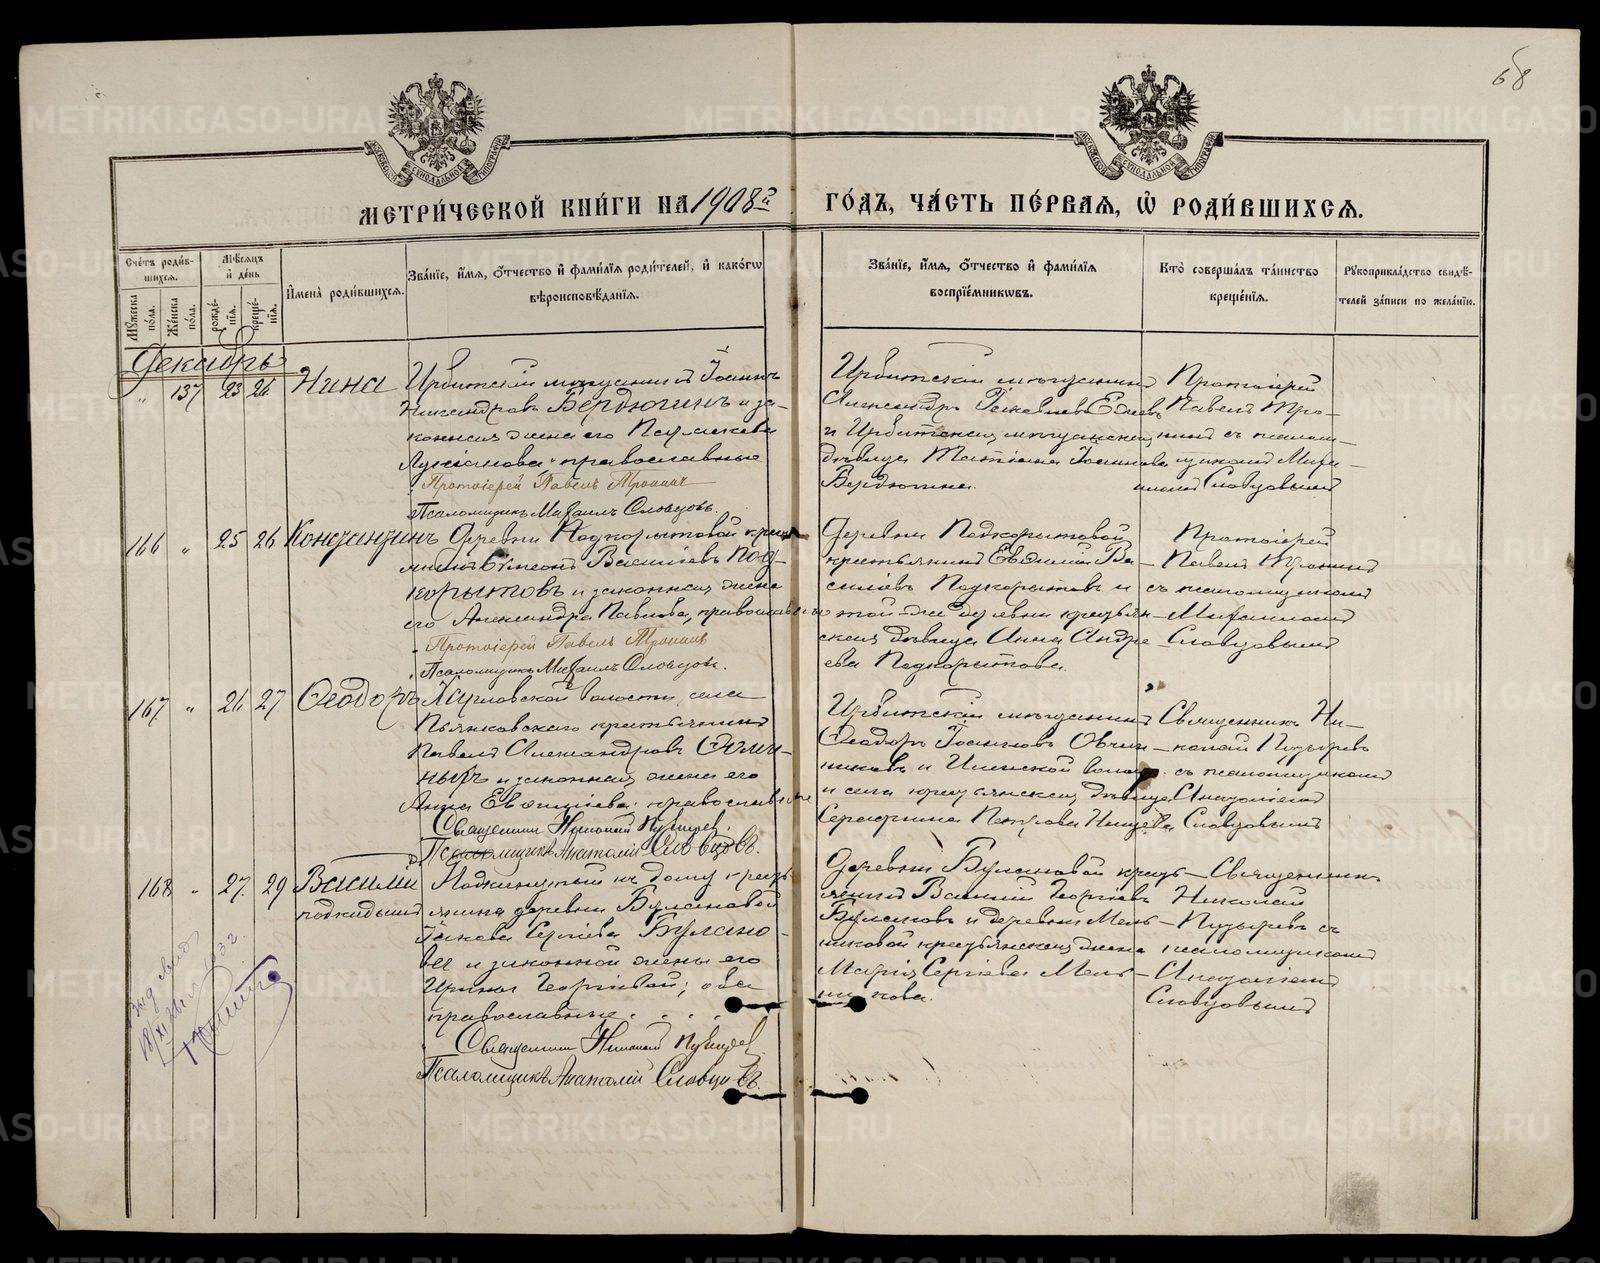 68
МОСКОВСКОЙ СУНОДАЛЬНОЙ ТИПОГРАФІИ
МОСКОВСКОЙ СУНОДАЛЬНОЙ ТИПОГРАФІИ
МЕТРИ́ЧЕСКОЙ КНИ́ГИ НА 1908й ГО́ДЪ, ЧА́СТЬ ПЕ́РВАЯ, Ѿ РОДИ́ВШИХСЯ.
Сче́тъ роди́в-
шихся.
Му́жеска по́ла.
Же́нска по́ла.
Мѣ́сяцъ
и҆ де́нь
рожде́-
нїя.
креще́-
нїя.
И҆мена̀ роди́вшихся.
Зва́нїе, и҆́мя, ѻ҆́тчество и҆ фами́лїя роди́телей, и҆ како́гѡ
вѣроисповѣ́данїя.
Зва́нїе, и҆́мя, ѻ҆́тчество и҆ фами́лїя
воспрїе́мникѡвъ.
Кто̀ соверша́лъ та́инство
креще́нїя.
Рꙋкоприкла́дство свидѣ́-
телей за́писи по жела́нїю.
Декабрь
" 137 23 26 Нина
Ирбитскій мѣщанинъ Іоаннъ
Никандровъ Бердюгинъ и за-
конная жена его Параскева
Лукіанова, православные
Протоіерей Павелъ Тронинъ
Псаломщикъ Михаилъ Словцовъ.
Ирбитскій мѣщанинъ
Александръ Іаковлевъ
и Ирбитская мѣщанская
дѣвица Татіана Іоаннова
Бердюгина.
Протоіерей
Павелъ Тро-
нинъ съ псалом-
щикомъ Миха-
иломъ Словцовымъ
166 " 25 26 Константинъ
Деревни Подкорытовой кресть
янинъ Симеонъ Васильевъ Под-
корытовъ и законная жена
его Александра Павлова, православные
Протоіерей Павелъ Тронинъ
Псаломщикъ Михаилъ Словцовъ.
Деревни Подкорытовой
крестьянинъ Евдокимъ Ва-
сильевъ Подкорытовъ и
той-же деревни крестьян-
ская дѣвица Анна Андре-
ева Подкорытова.
Протоіерей
Павелъ Тронинъ
съ псаломщикомъ
Михаиломъ
Словцовымъ
167 " 26 27 Ѳеодоръ
волости, села
Пьянковскаго крестьянинъ
Павелъ Александровъ
и законная жена его
Анна православные
Священникъ Николай Пузыревъ.
Псаломщикъ Анатолій Словцовъ.
Ирбитскій мѣщанинъ
Ѳеодоръ Іоанновъ Овчин-
никовъ и волос
и села крестьянская дѣвица
Серафима Петрова
Священникъ Ни-
колай Пузыревъ
съ псаломщикомъ
Анатоліемъ
Словцовымъ
168 " 27 29 Василій
подкидышъ
Подкинутый къ дому кресть
янина деревни Булановой
Іакова Сергіева Булано-
ва и законной жены его
Ирины Георгіевой; оба
православные . . . .
Священникъ Николай Пузыревъ
Псаломщикъ Анатолій Словцовъ.
Деревни Булановой кресть-
янинъ Василій Георгіевъ
Булановъ и деревни Мель-
никовой крестьянская жена
Марія Сергіева Мель-
никова.
Священникъ
Николай
Пузыревъ съ
псаломщикомъ
Анатоліемъ
Словцовымъ
METRIKI.GASO-URAL.RU